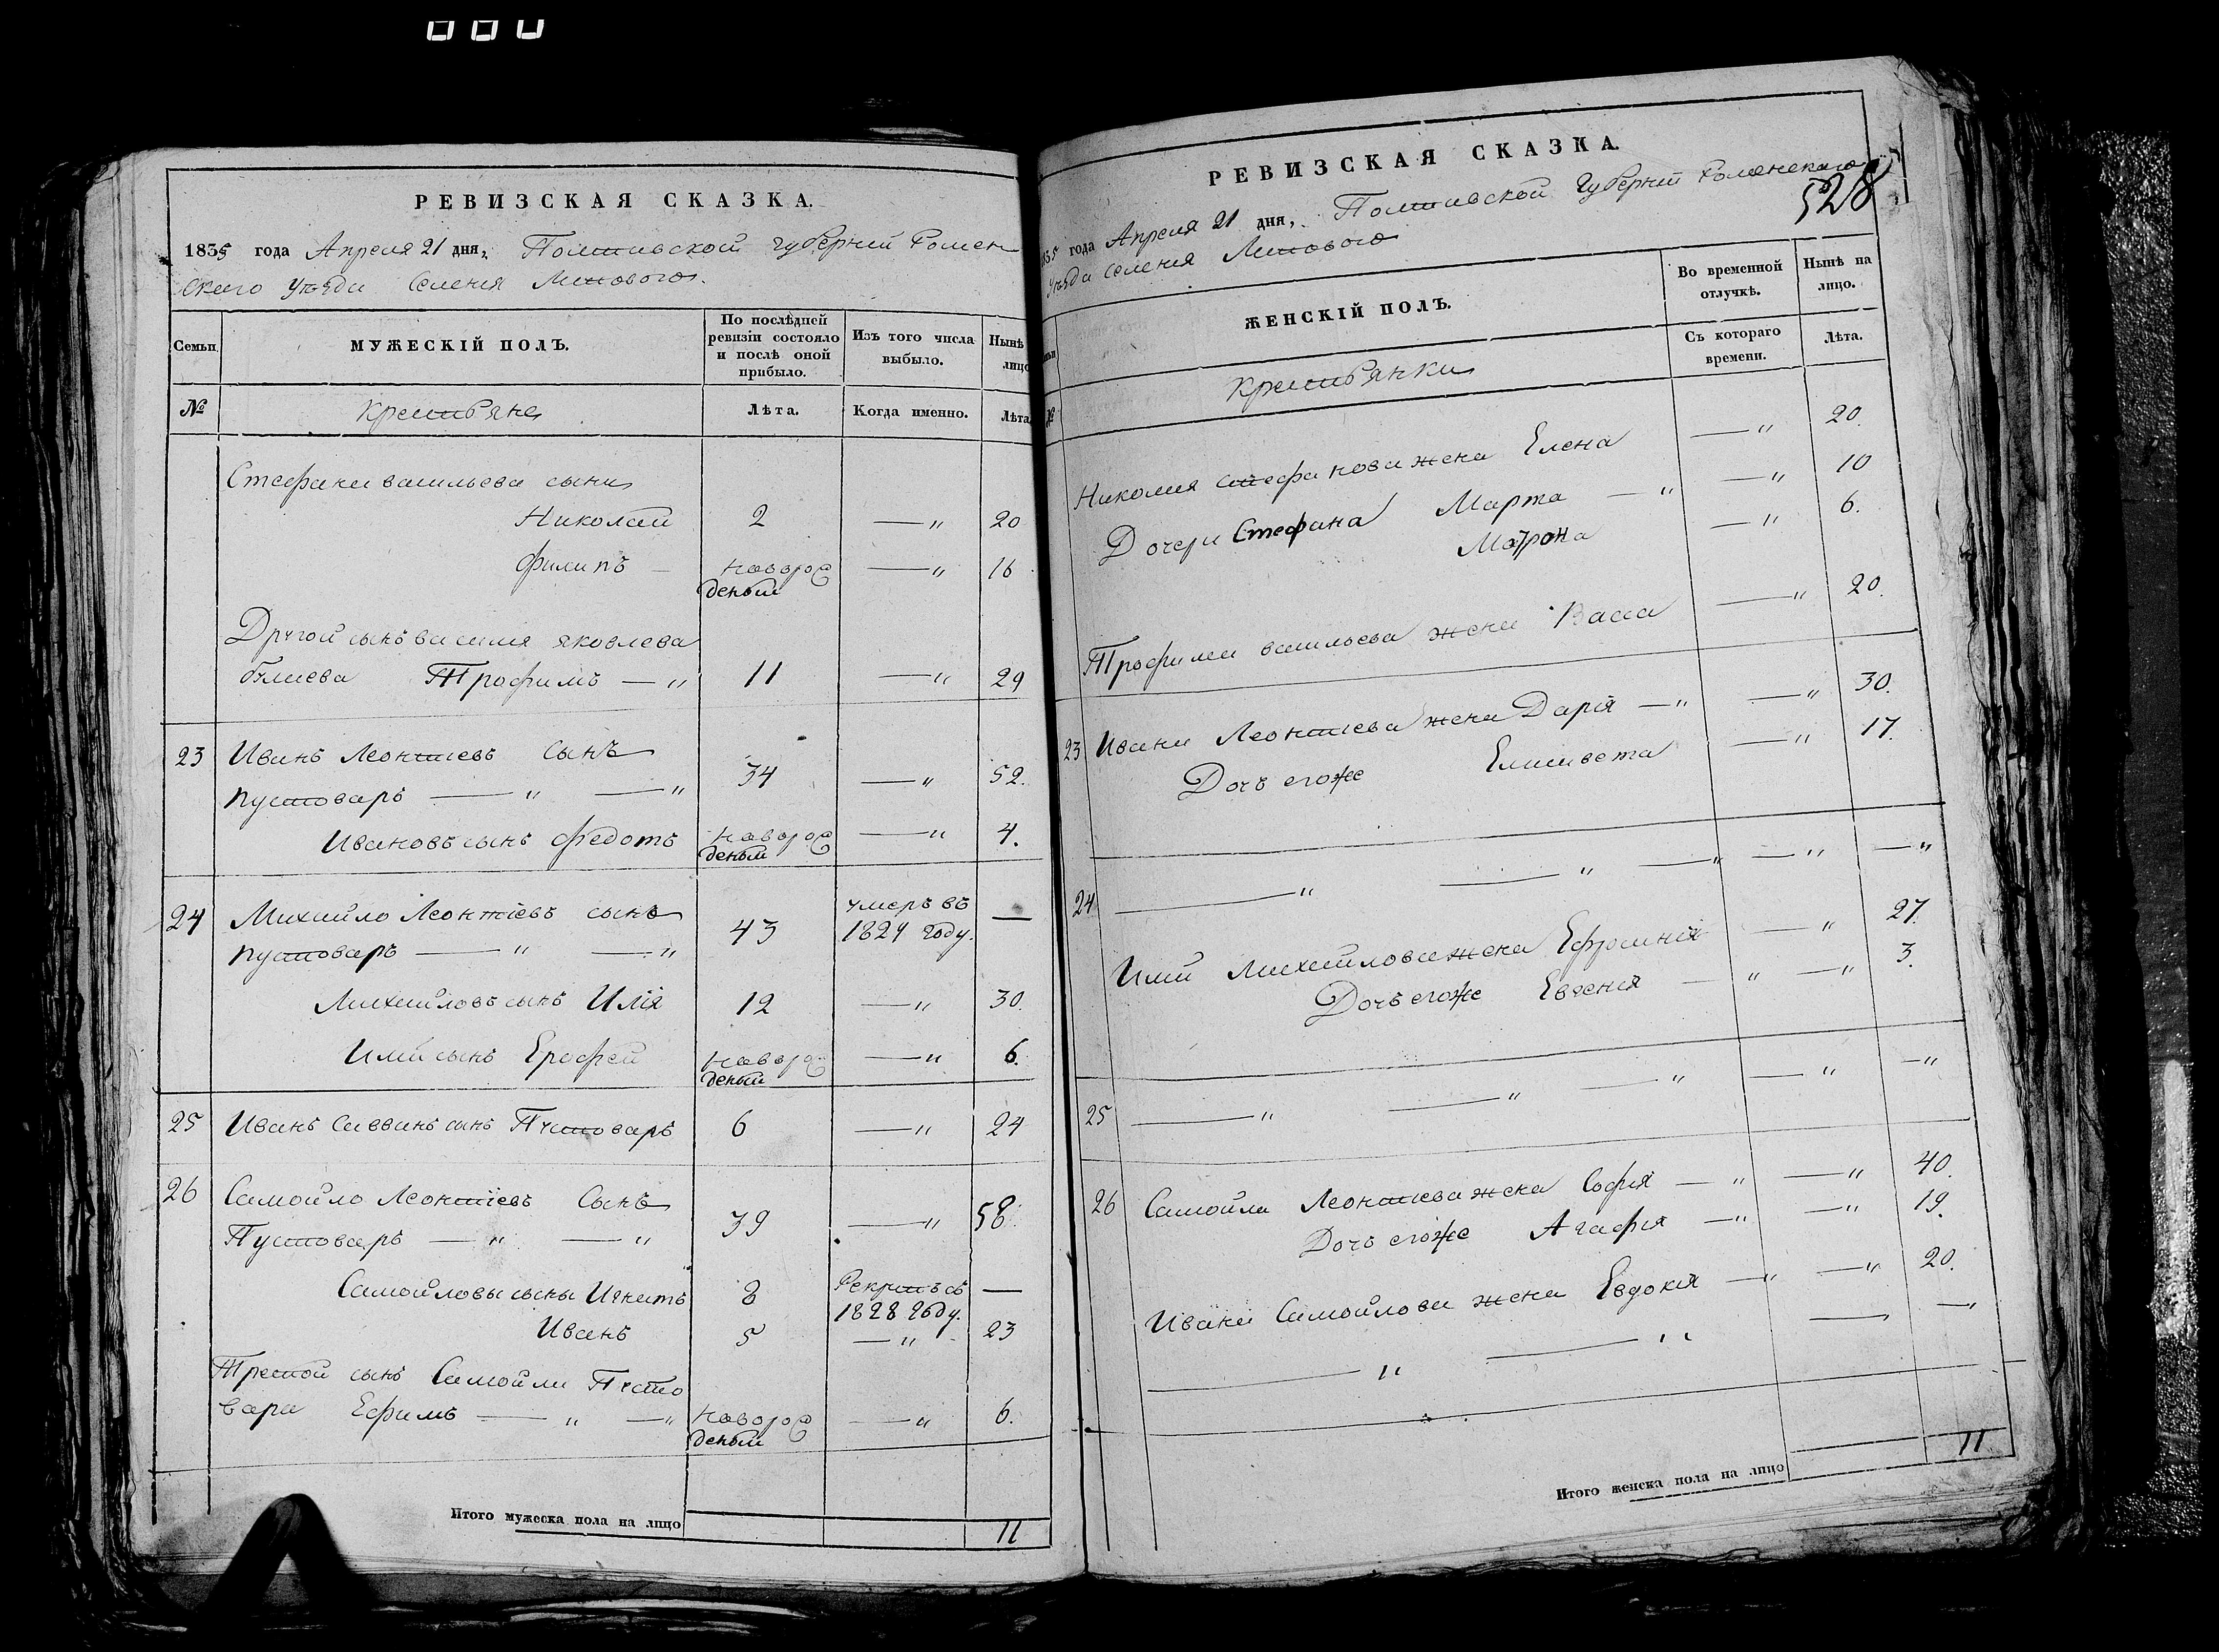 РЕВИЗСКАЯ СКАЗКА.
1835 года Апреля 21 дня, Полтавской губернии Ромен
скаго уезда Селения Липового.
Семьи
МУЖЕСКІЙ ПОЛЪ.
По послѣдней ревизіи состояло и послѣ оной прибыло.
Изъ того числа выбыло.
Нынѣ лицо
№
крестьяне
Лѣта.
Когда именно.
Лѣта
Стефана васильева сыны
Николай 2 —„ 20
Филипъ — новорож —„ 16
деный
Другой сынъ василия яковлева
Трофимъ —„ 11 —„ 29
23 Иванъ Леонтиевъ сынъ
пустоваръ —„ —„ 34 —„ 52.
Ивановъ сынъ Федотъ новорож —„ 4.
деный
24 Михайло Леонтіевъ сынъ умеръ въ
пустоваръ —„ —„ 43 1824 году. —
Михайловъ сынъ Илія 12 —„ 30.
Илии сынъ Ерофей новорож —„ 6.
деный
25 Иванъ Саввинъ сынъ Пустоваръ 6 —„ 24
26 Самойло Леонтіевъ Сынъ
Пустоваръ —„ —„ 39 —„ 58.
Самойловы сыны Игнатъ 8 Рекрутъ съ —
1828 году.
Иванъ 5 —„ 23
Третой сынъ Самойла Пусто
вара Ефимъ —„ —„ новорож —„ 6.
деный
Итого мужеска пола на лицо 11
РЕВИЗСКАЯ СКАЗКА.
528
1835 года Апреля 21 дня, Полтавской губернии Роменскаго
уезда селения Липового
ЖЕНСКІЙ ПОЛЪ.
Во временной отлучкѣ.
Нынѣ на лицо.
№
крестьянки
Съ котораго времени.
Лѣта.
Николая стефанова жена Елена —„ 20.
Дочери Стефана Марта —„ —„ 10
Матрона —„ 6.
Трофима васильева жена Васса —„ 20.
23 Ивана Леонтиева жена Дарія —„ —„ 30.
Дочь егоже Елисавета —„ 17.
24 —„ —„ —„ —„ —„
Илии Михайлова жена Ефросинія —„ 27.
Дочь егоже Евгенія —„ —„ 3.
25 —„ —„ —„ —„ —„
26 Самойла Леонтиева жена Софія —„ —„ 40.
Дочь егоже Агафія —„ —„ 19.
Ивана Самойлова жена Евдокія —„ —„ 20.
—„ —„ — —„
Итого женска пола на лицо 11